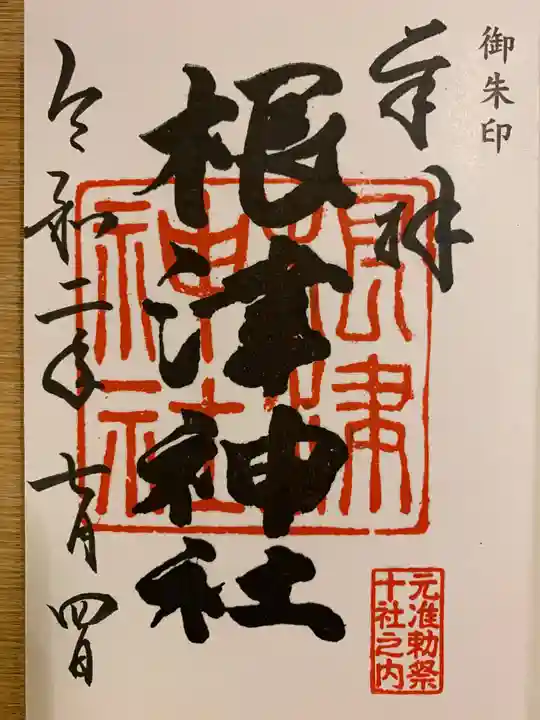 御朱印
奉拝
根津神社
根津
神社
元准勅祭
十社之内
令和二年七月四日